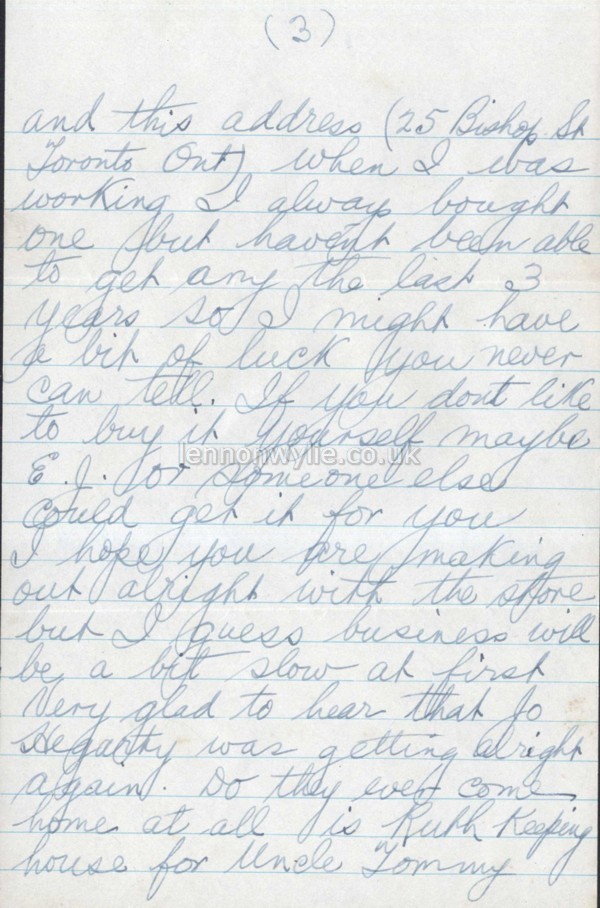 (3)
and this address (25 Bishop St
Toronto Ont) when I was
working I always bought
one but havent been able
to get any the last 3
years so I might have
a bit of luck you never
can tell. If you dont like
to buy it yourself maybe
lennonwylie.co.uk
E.J. or someone else
could get it for you
I hope you are making
out alright with the store
but I guess business will
be a bit slow at first
Very glad to hear that Jo
Hegarty was getting alright
again. Do they ever come
home at all is Ruth Keeping
house for Uncle Tommy